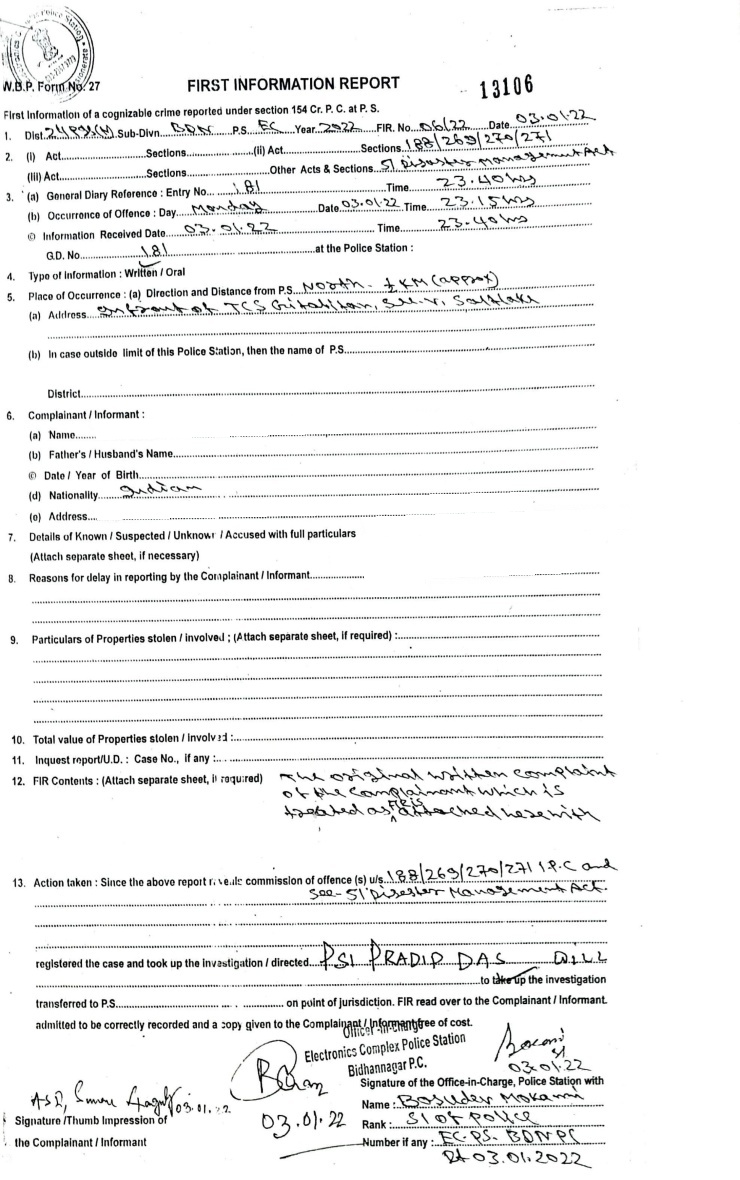 W.B.P. Form No. 27
FIRST INFORMATION REPORT
13106
First Information of a cognizable crime reported under section 154 Cr. P. C. at P. S.
1. Dist. 24 Sub-Divn. BDN P.S. EC Year 2022 FIR. No. 06/22 Date 03.01.22
2. (i) Act Sections (ii) Act Sections 188/269/270/271
(iii) Act Sections Other Acts & Sections 51 Disaster Management Act
3. (a) General Diary Reference : Entry No. 181 Time 23.40 hrs
(b) Occurrence of Offence : Day Monday Date 03.01.22 Time 23.15 hrs
© Information Received Date 03.01.22 Time 23.40 hrs
G.D. No. 181 at the Police Station :
4. Type of Information : Written / Oral
5. Place of Occurrence : (a) Direction and Distance from P.S. North - KM (approx)
(a) Address Infront of TCS Gitabitan, Sec-V, Saltlake
(b) In case outside limit of this Police Station, then the name of P.S.
District
6. Complainant / Informant :
(a) Name
(b) Father's / Husband's Name
© Date / Year of Birth
(d) Nationality Indian
(e) Address
7. Details of Known / Suspected / Unknown / Accused with full particulars
(Attach separate sheet, if necessary)
8. Reasons for delay in reporting by the Complainant / Informant
9. Particulars of Properties stolen / involved ; (Attach separate sheet, if required) :
10. Total value of Properties stolen / involved :
11. Inquest report/U.D. : Case No., if any :
12. FIR Contents : (Attach separate sheet, if required) The original written complaint
of the complainant which is
treated as FIR is attached herewith
13. Action taken : Since the above report reveals commission of offence (s) u/s. 188/269/270/271 I.P.C and
Sec-51 Disester Management Act.
registered the case and took up the investigation / directed PSI PRADIP DAS WILL
to take up the investigation
transferred to P.S. on point of jurisdiction. FIR read over to the Complainant / Informant.
admitted to be correctly recorded and a copy given to the Complainant / Informant free of cost.
Officer-in-Charge
Electronics Complex Police Station
Bidhannagar P.C.
SI
03.01.22
Signature of the Office-in-Charge, Police Station with
ASI, 03.01.22
03.01.22
Name :
Signature /Thumb Impression of
Rank : SI of Police
the Complainant / Informant
Number if any : EC-PS. BDN PC
Dt 03.01.2022